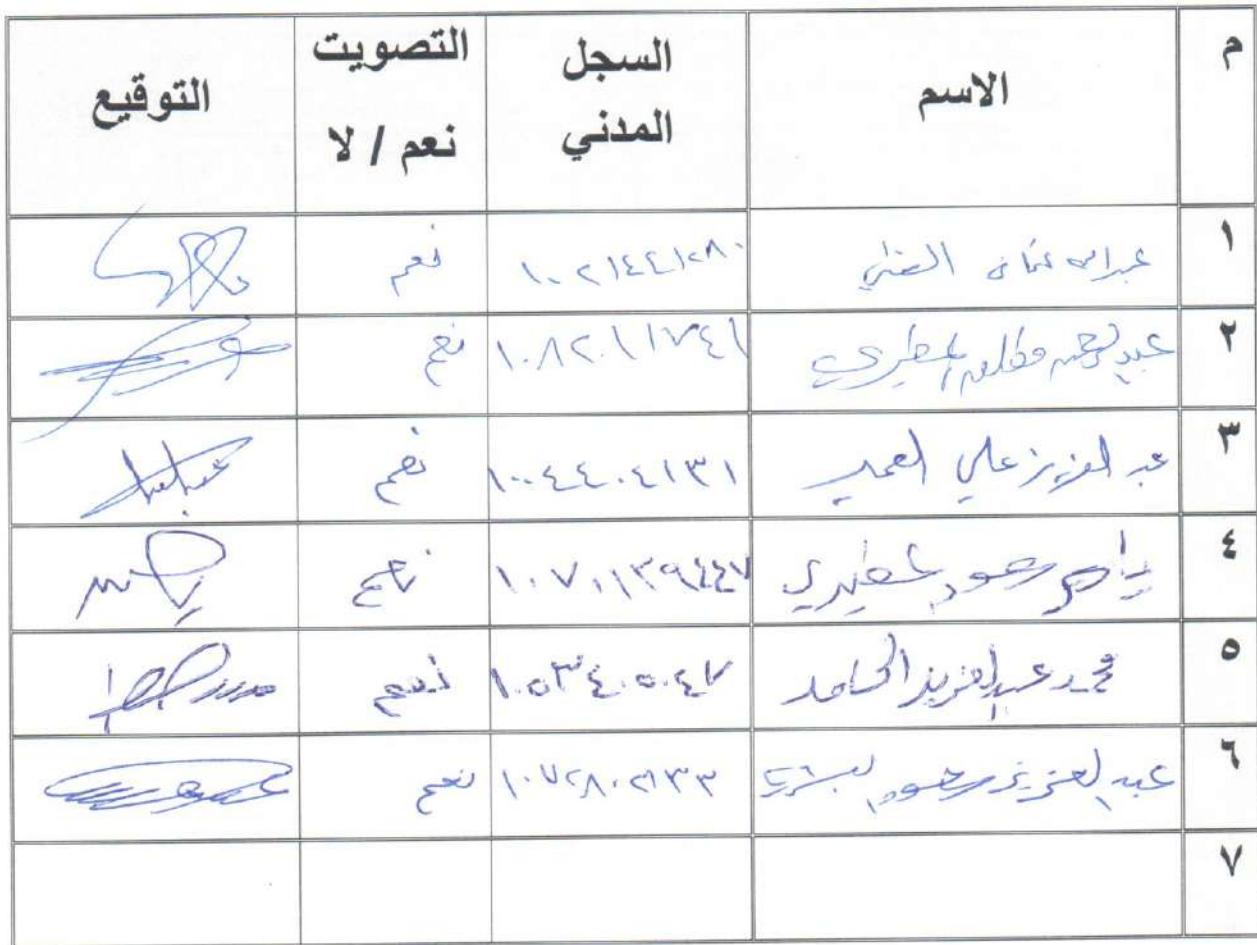 م الاسم السجل المدني التصويت نعم / لا التوقيع
١ عبدالله عثمان ١٠٠٢١٤٤١٢٨٠ نعم
٢ عبدالرحمن مطلق المطيري ١٠٨٢٠١١٧٤١ نعم
٣ عبد العزيز علي العمير ١٠٠٤٤٠٤١٣١ نعم
٤ سعود المطيري نعم
٥ محمد عبدالعزيز الحامد ١٠٥٣٤٠٥٠٤٧ نعم
٦ عبد العزيز سعود ١٠٧٢٨٠٢١٣٣ نعم
٧